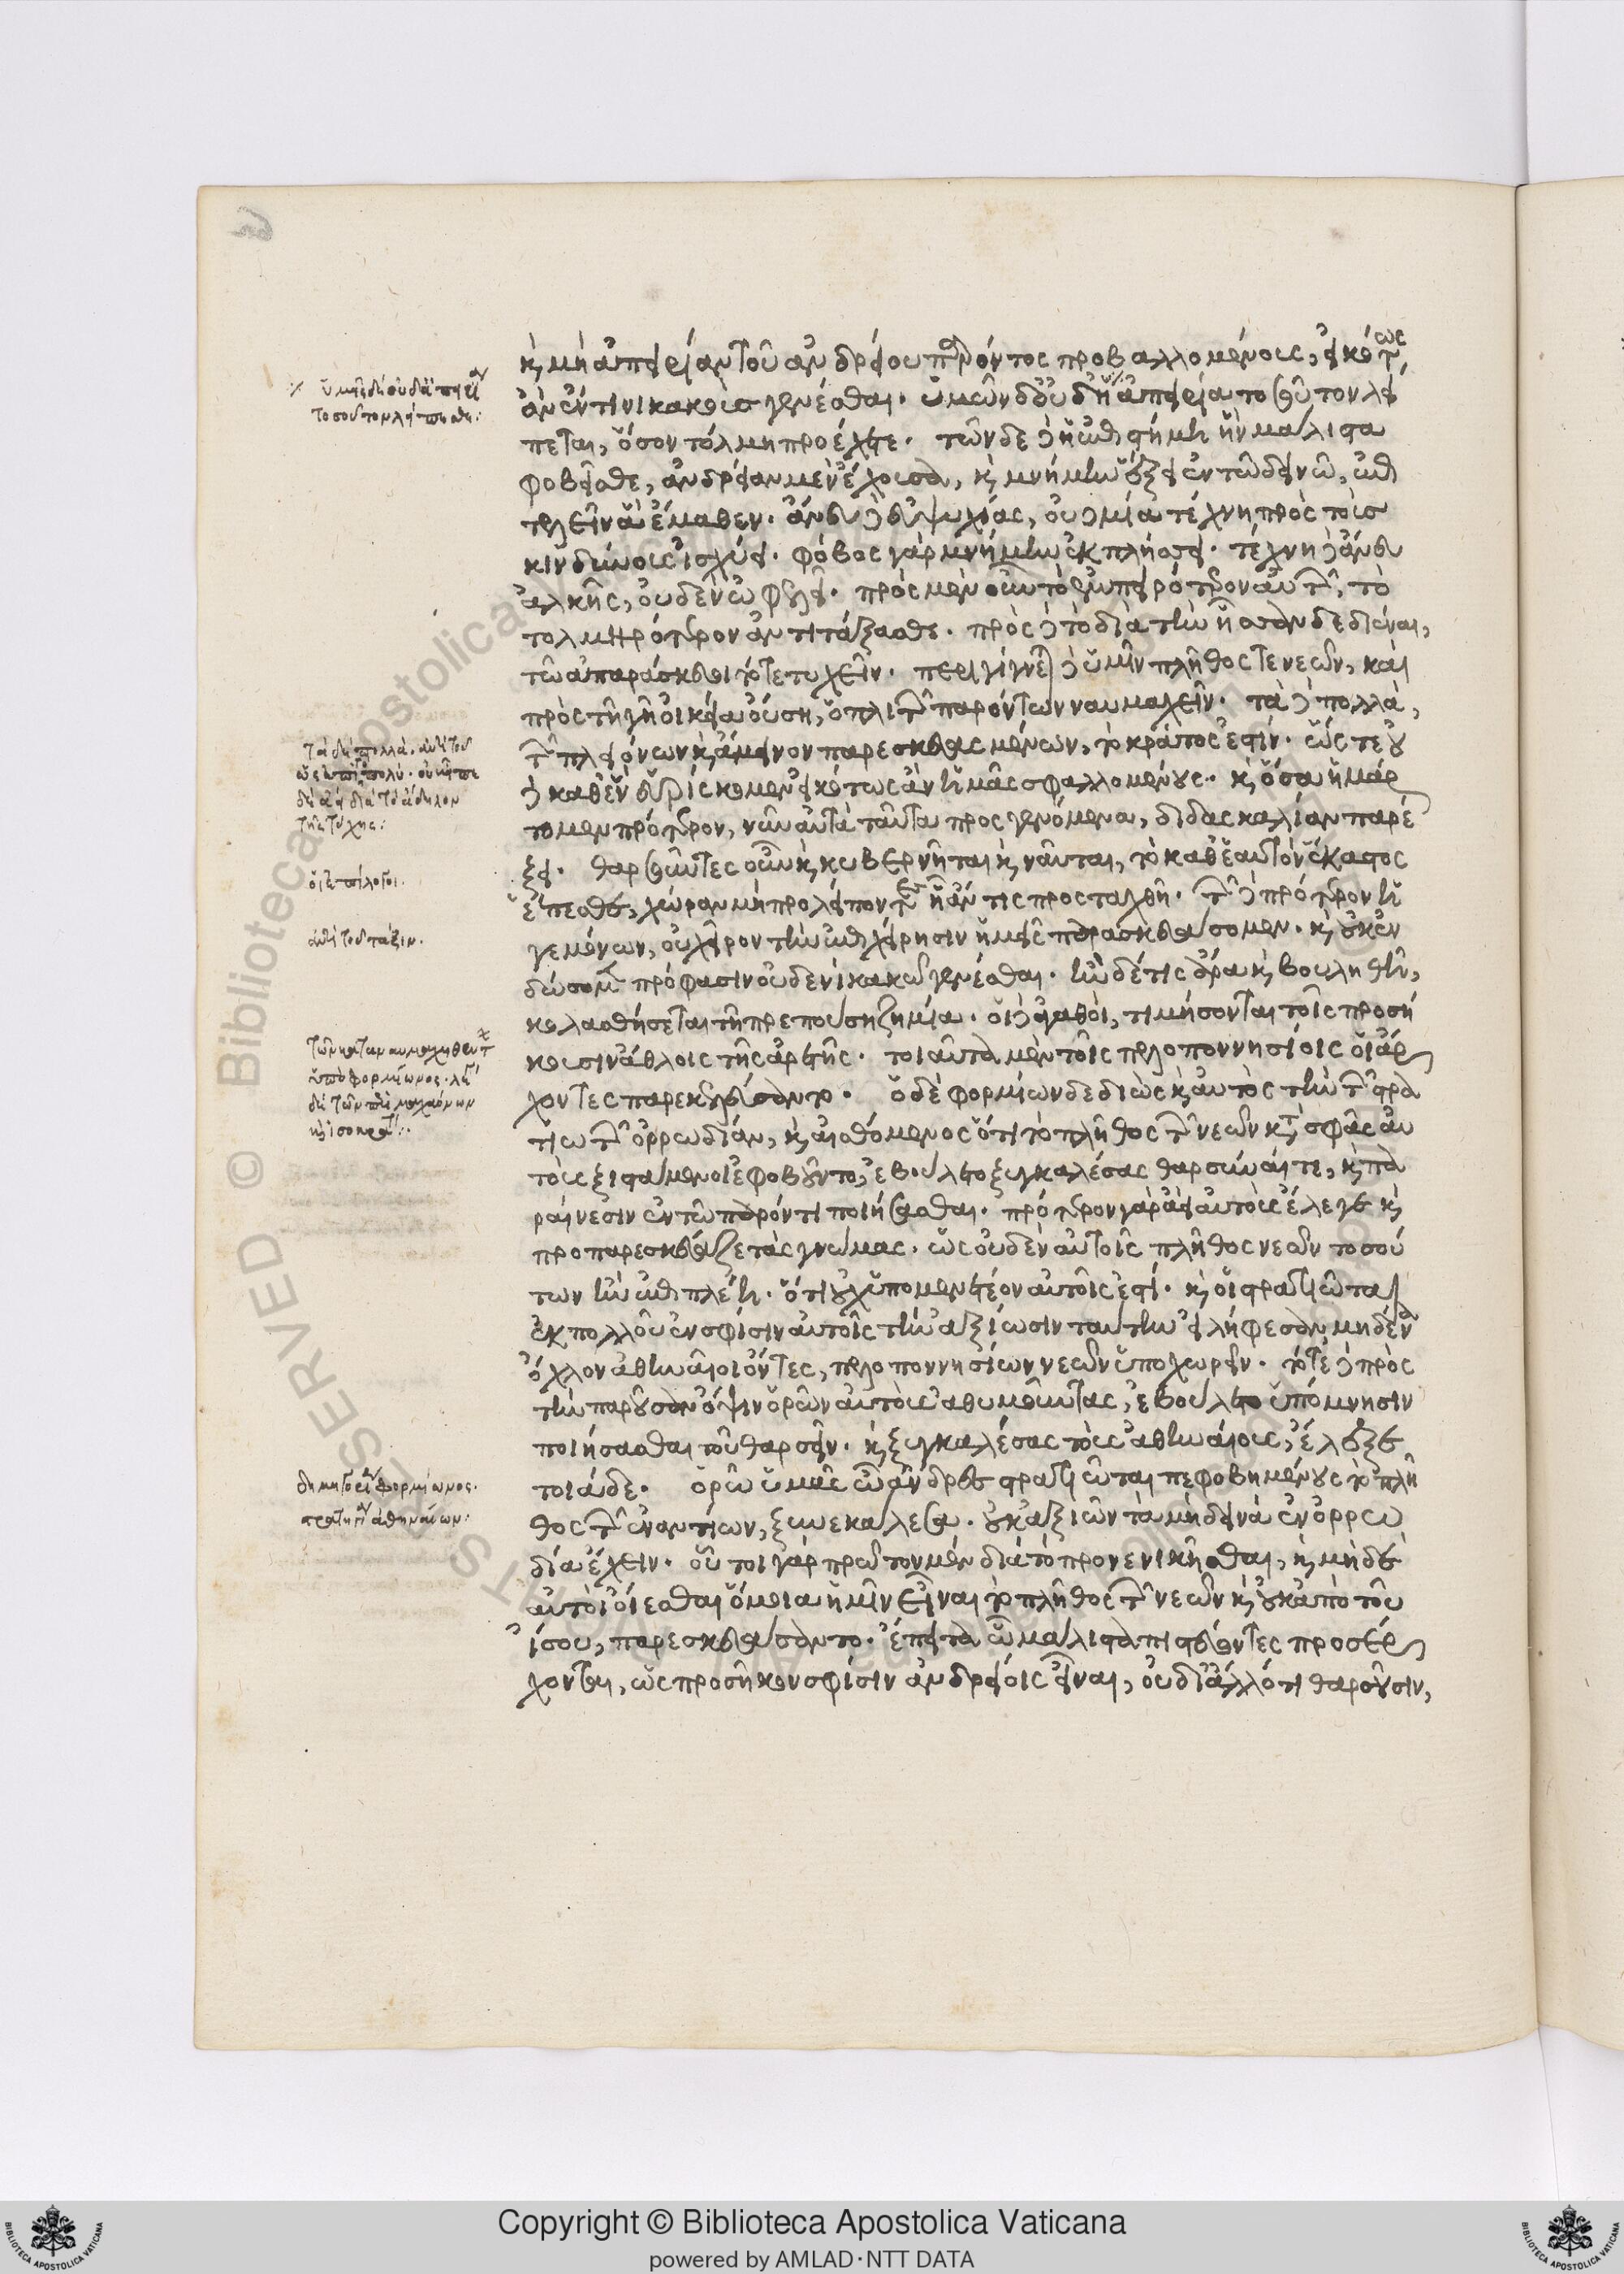 καὶ μὴ ἀπειρίαν τοῦ ἀνδρείου παρόντος προβαλλομένους, εἰκότως
ἂν ἔν τινι κακοὺς γενέσθαι. ὑμῶν δὲ οὐδὴ ἀπειρία τοσοῦτον λεί
πεται, ὅσον τόλμῃ προέχετε. τῶνδε δὲ ἡ ἐπιστήμη ἣν μάλιστα
φοβεῖσθε, ἀνδρείαν μὲν ἔχουσα, καὶ μνήμην ἕξει ἐν τῷ δεινῷ, ἐπι
τελεῖν ἃ ἔμαθεν. ἄνευ δὲ εὐψυχίας, οὐδεμία τέχνη πρὸς τοὺς
κινδύνους ἰσχύει. φόβος γὰρ μνήμην ἐκπλήσσει. τέχνη δὲ ἄνευ
ἀλκῆς, οὐδὲν ὠφελεῖ. πρὸς μὲν οὖν τὸ ἐμπειρότερον αὐτῶν, τὸ
τολμηρότερον ἀντιτάξασθε. πρὸς δὲ τὸ διὰ τὴν ἧσσαν δεδιέναι,
τῷ ἀπαράσκευοι τότε τυχεῖν. περιγίγνεται δὲ ὑμῖν πλῆθός τε νεῶν, καὶ
πρὸς τῇ γῇ οἰκείᾳ οὔσῃ, ὁπλιτῶν παρόντων ναυμαχεῖν. τὰ δὲ πολλὰ,
τῶν πλειόνων καὶ ἄμεινον παρεσκευασμένων, τὸ κράτος ἐστίν. ὥστε οὐ
δὲ καθ' ἓν εὑρίσκομεν εἰκότως ἂν ἡμᾶς σφαλλομένους. καὶ ὅσα ἡμάρ
τομεν πρότερον, νῦν αὐτὰ ταῦτα προσγενόμενα, διδασκαλίαν παρέ
ξει. θαρσοῦντες οὖν καὶ κυβερνῆται καὶ ναῦται, τὸ καθ' ἑαυτὸν ἕκαστος
ἕπεσθε, χώραν μὴ προλείποντες ᾗ ἄν τις προσταχθῇ. τῶν δὲ πρότερον ἡ
γεμόνων, οὐ χεῖρον τὴν ἐπιχείρησιν ἡμεῖς παρασκευάσομεν. καὶ οὐκ ἐν
δώσομεν πρόφασιν οὐδενὶ κακῷ γενέσθαι. ἢν δέ τις ἄρα καὶ βουληθῇ,
κολασθήσεται τῇ πρεπούσῃ ζημίᾳ. οἱ δὲ ἀγαθοὶ, τιμήσονται τοῖς προσή
κουσιν ἄθλοις τῆς ἀρετῆς. τοιαῦτα μὲν τοῖς πελοποννησίοις οἱ ἄρ
χοντες παρεκελεύσαντο. ὁ δὲ φορμίων δεδιὼς καὶ αὐτὸς τὴν τῶν στρα
τιωτῶν ὀρρωδίαν, καὶ αἰσθόμενος ὅτι τὸ πλῆθος τῶν νεῶν κατὰ σφᾶς αὐ
τοὺς ξιστάμενοι ἐφοβοῦντο, ἐβούλετο ξυγκαλέσας θαρσύναί τε, καὶ πα
ραίνεσιν ἐν τῷ παρόντι ποιήσασθαι. πρότερον γὰρ ἀεὶ αὐτοῖς ἔλεγε καὶ
προπαρεσκεύαζε τὰς γνώμας. ὡς οὐδὲν αὐτοῖς πλῆθος νεῶν τοσοῦ
των ἢν ἐπιπλέῃ. ὅτι οὐχ ὑπομενετέον αὐτοῖς ἐστί. καὶ οἱ στρατιῶται
ἐκ πολλοῦ ἐν σφίσιν αὐτοῖς τὴν ἀξίωσιν ταύτην εἰλήφεσαν μηδένα
ὄχλον ἀθηναῖοι ὄντες, πελοποννησίων νεῶν ὑποχωρεῖν. τότε δὲ πρὸς
τὴν παροῦσαν ὄψιν ὁρῶν αὐτοὺς ἀθυμοῦντας, ἐβούλετο ὑπόμνησιν
ποιήσασθαι τοῦ θαρσεῖν. καὶ ξυγκαλέσας τοὺς ἀθηναίους, ἔλεξε
τοιάδε. ὁρῶν ὑμᾶς ὦ ἄνδρες στρατιῶται πεφοβημένους τὸ πλῆ
θος τῶν ἐναντίων, ξυνεκάλεσα. οὐκ ἀξιῶν τὰ μὴ δεινὰ ἐν ὀρρω
δίᾳ ἔχειν. οὗτοι γὰρ πρῶτον μὲν διὰ τὸ προνενικῆσθαι, καὶ μηδὲ
αὐτοὶ οἴεσθαι ὅμοια ἡμῖν εἶναι τὸ πλῆθος τῶν νεῶν καὶ οὐκ ἀπὸ τοῦ
ἴσου, παρεσκευάσαντο. ἔπειτα ᾧ μάλιστα πιστεύοντες προσέρ
χονται, ὡς προσῆκον σφίσιν ἀνδρείοις εἶναι, οὐ δι' ἄλλό τι θαρσοῦσιν,
ὑμεῖς δὲ οὐδὲ ἀπειρίαν
τοσοῦτον λείπεσθε:
τὰ δὲ πολλά. ἀντὶ τοῦ
ὡς ἐπὶ τὸ πολύ. οὐκ εἶπε
δὲ ἀεὶ διὰ τὸ ἄδηλον
τῆς τύχης:
οἱ ἐπίλογοι.
ἀντὶ τοῦ τάξιν.
τῶν καταναυμαχηθέντων
ὑπὸ φορμίωνος. λέγει
δὲ τῶν περὶ μαχάονα
καὶ ἰσοκράτην:
δημηγορία φορμίωνος.
στρατηγοῦ ἀθηναίων:
Copyright © Biblioteca Apostolica Vaticana
powered by AMLAD·NTT DATA